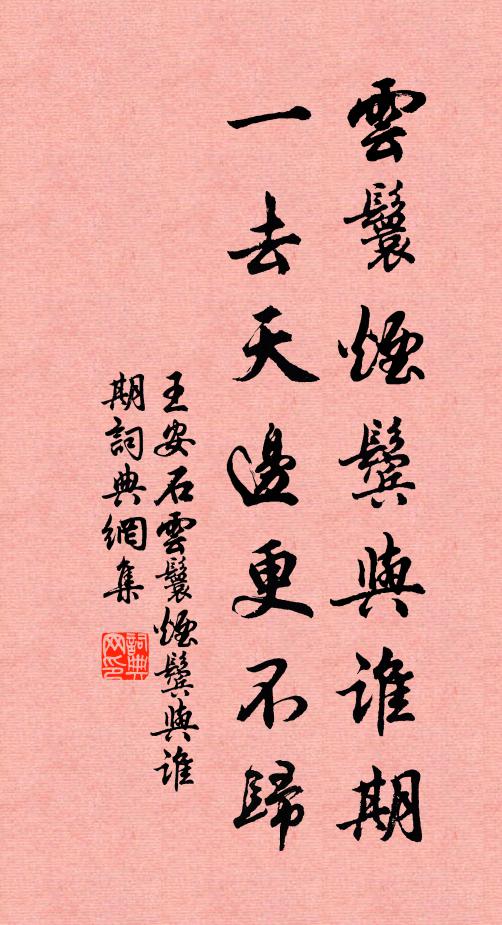 雲鬟煙鬢與誰期
一去天邊更不歸
王安石雲鬟煙鬢與誰
期詞典網集
詞典
网印